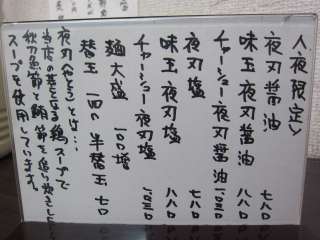 〈夜限定〉
夜刃醤油 七八〇
味玉夜刃醤油 八八〇
チャーシュー夜刃醤油 一〇三〇
夜刃塩 七八〇
味玉夜刃塩 八八〇
チャーシュー夜刃塩 一〇三〇
麺大盛 一〇〇増
替玉 一四〇 半替玉 七〇
夜刃(やと)とは…
当店の基となる鶏スープで
秋刀魚節と鯖節を追い炊きした
スープを使用しています。